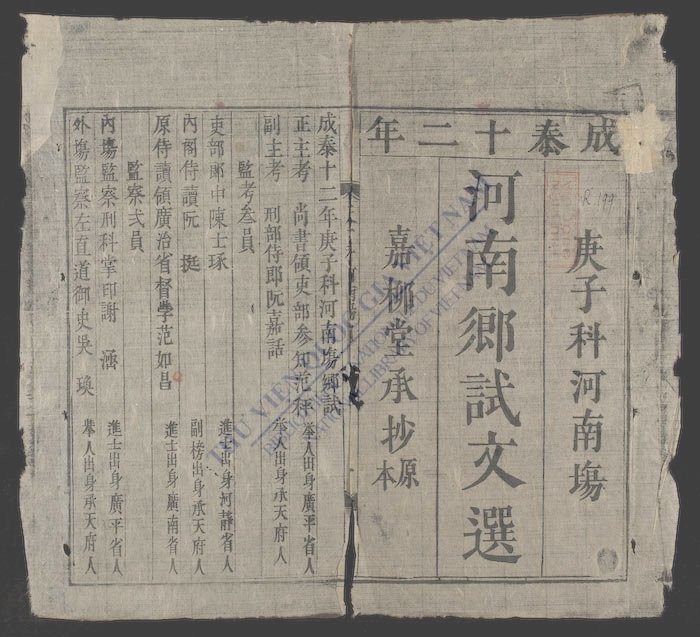 成泰十二年
庚子科河南塲
河南鄉試文選
嘉栁堂承抄原本
成泰十二年庚子科河南塲鄉試
正主考 尚書領吏部參知范 舉人出身廣平省人
副主考 刑部侍郎阮嘉話 舉人出身承天府人
監考叁員
吏部郎中陳士琢 進士出身河靜省人
內閣侍讀阮 挺 副榜出身承天府人
原侍讀領廣治省督學范如昌 進士出身廣南省人
監察弍員
內塲監察刑科掌印謝 涵 進士出身廣平省人
外塲監察左直道御史吳 瑛 舉人出身承天府人
R.177
THƯ VIỆN QUỐC GIA VIỆT NAM
BIBLIOTHÈQUE NATIONALE DU VIETNAM
NATIONAL LIBRARY OF VIETNAM